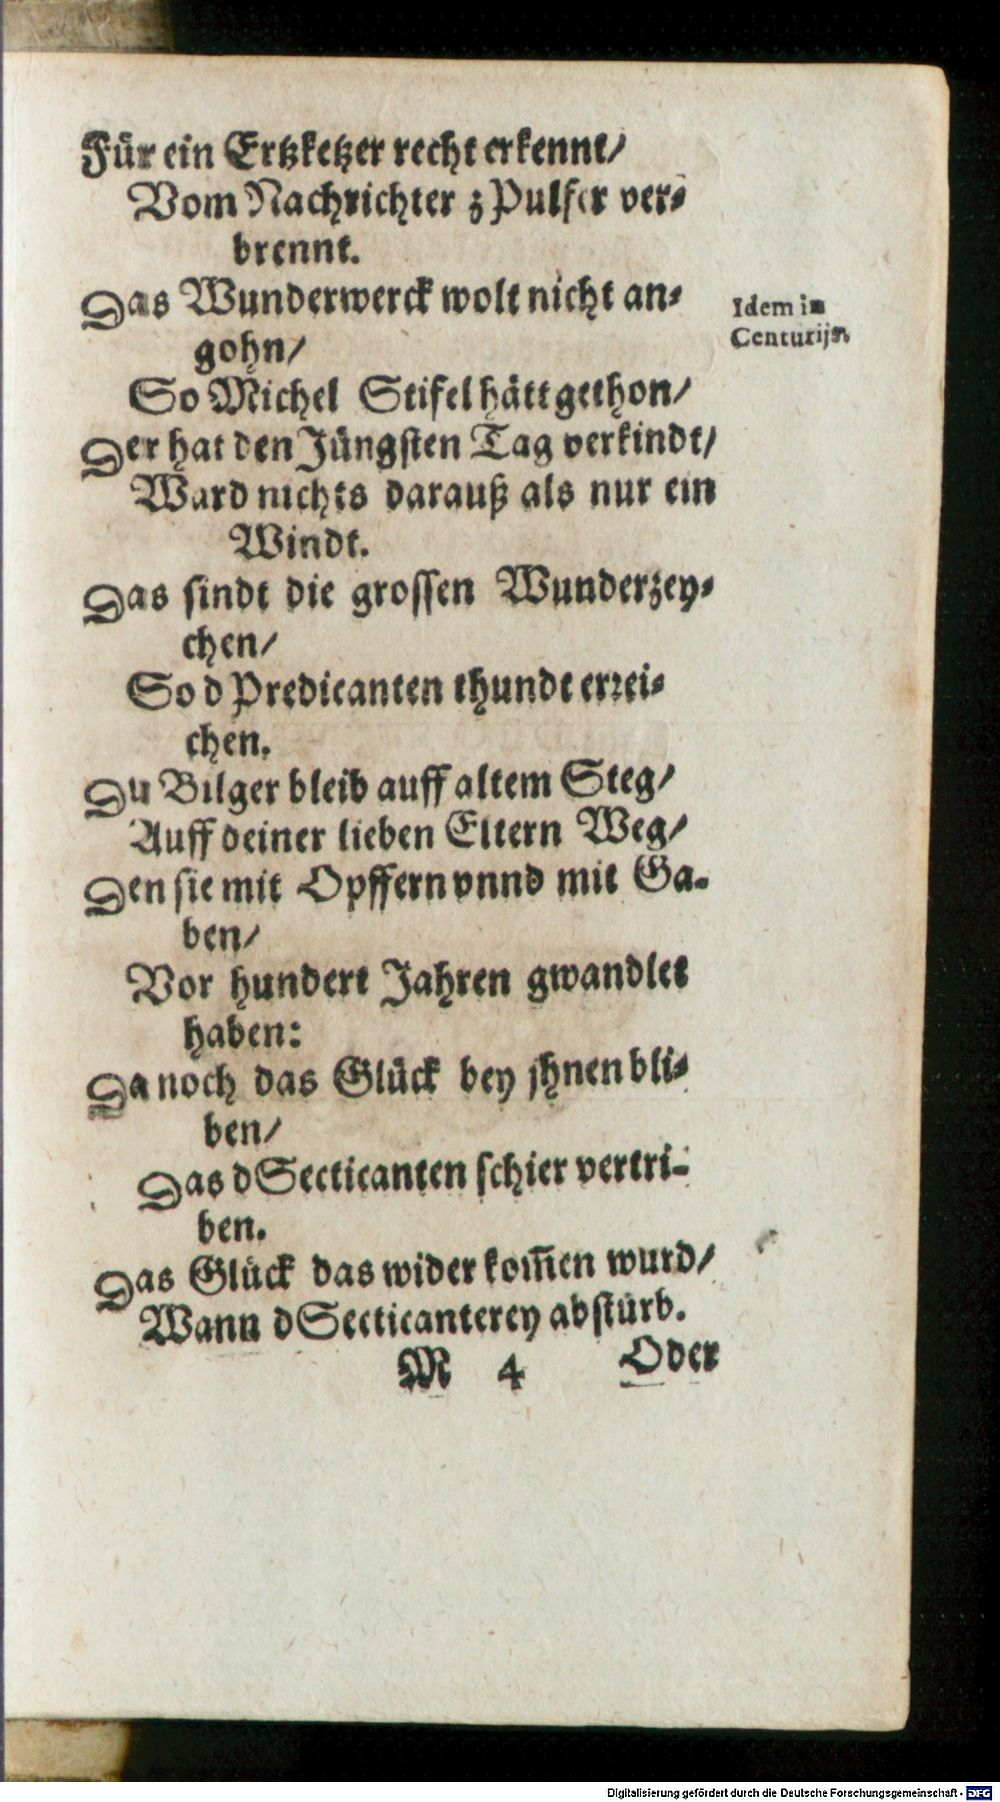 Für ein Ertzketzer recht erkennt/
Vom Nachrichter z Pulfer ver⸗
brennt.
Das Wunderwerck wolt nicht an⸗
gohn/
Idem in
Centurijs.
So Michel Stifel hätt gethon/
Der hat den Jüngsten Tag verkindt/
Ward nichts darauß als nur ein
Windt.
Das sindt die grossen Wunderzey⸗
chen/
So d Predicanten thundt errei⸗
chen.
Du Bilger bleib auff altem Steg/
Auff deiner lieben Eltern Weg/
Den sie mit Opffern vnnd mit Ga⸗
ben/
Vor hundert Jahren gwandlet
haben:
Da noch das Glück bey jhnen bli⸗
ben/
Das d Secticanten schier vertri⸗
ben.
Das Glück das wider kom̃en wurd/
Wann d Secticanterey abstürb.
M 4 Oder
Digitalisierung gefördert durch die Deutsche Forschungsgemeinschaft - DFG